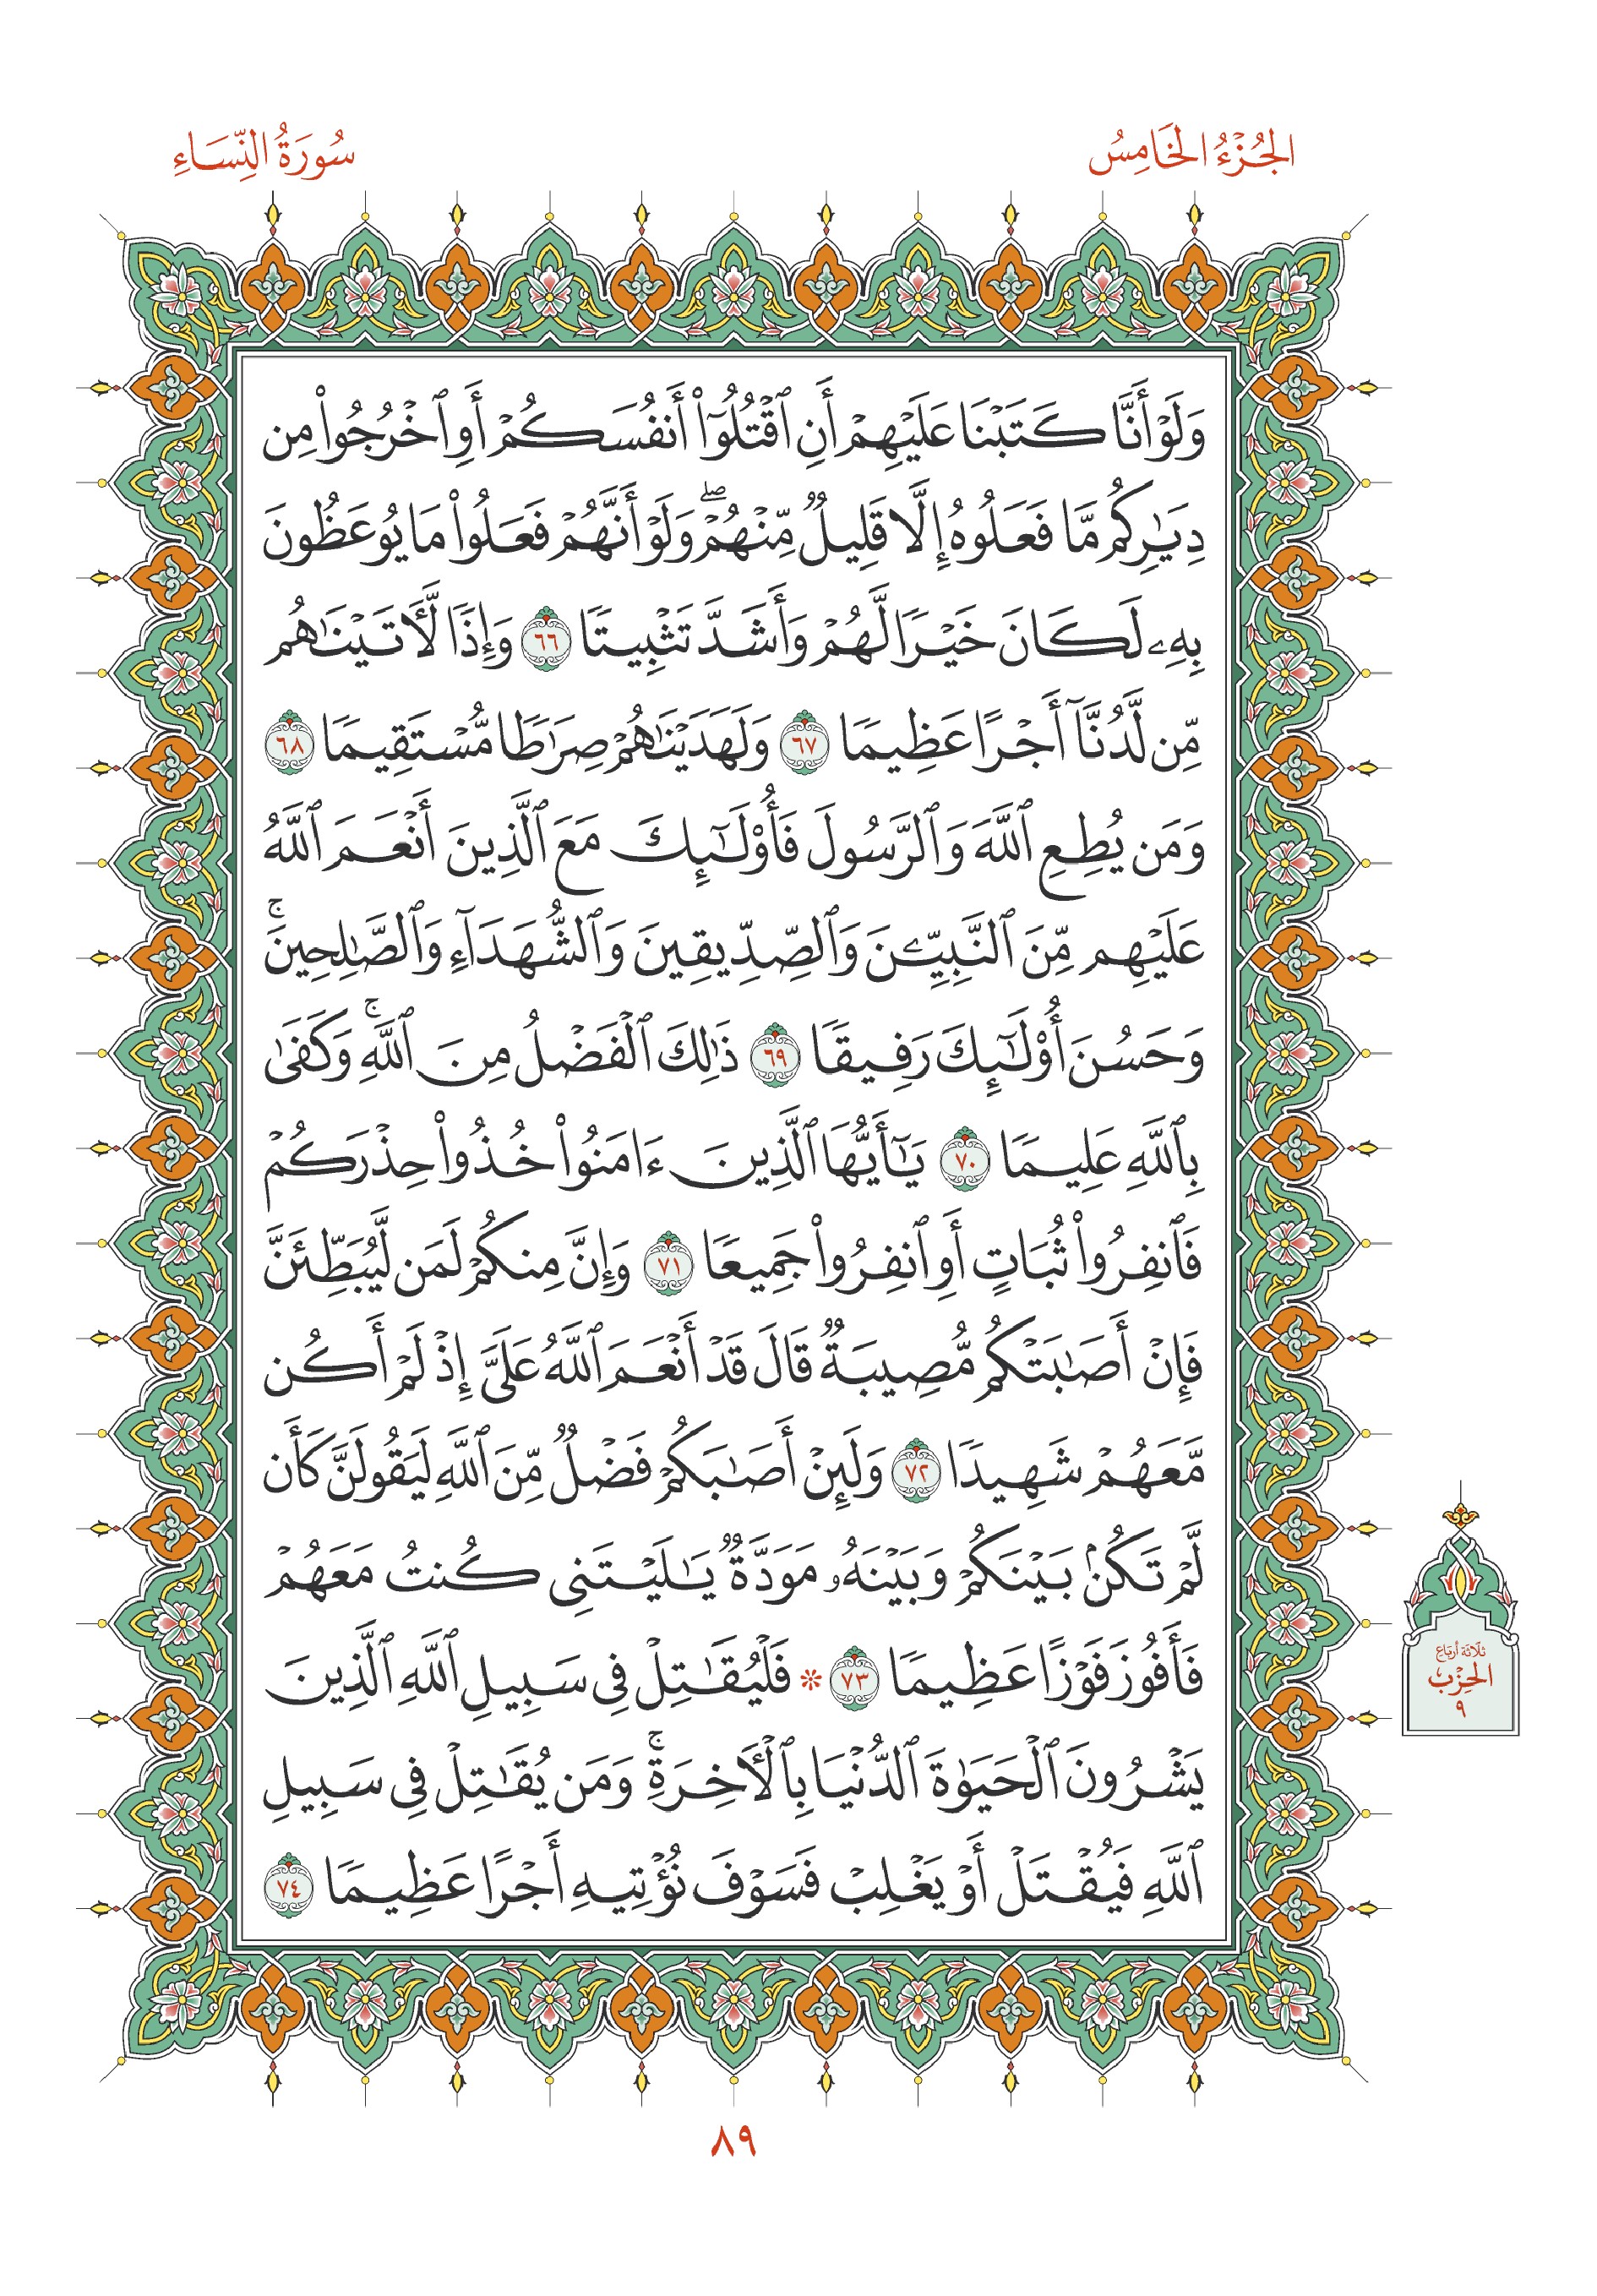 الجُزْءُ الخَامِسُ
سُورَةُ النِّسَاءِ
وَلَوْ أَنَّا كَتَبْنَا عَلَيْهِمْ أَنِ ٱقْتُلُوٓاْ أَنفُسَكُمْ أَوِ ٱخْرُجُواْ مِن
دِيَٰرِكُم مَّا فَعَلُوهُ إِلَّا قَلِيلٌ مِّنْهُمْۖ وَلَوْ أَنَّهُمْ فَعَلُواْ مَا يُوعَظُونَ
بِهِۦ لَكَانَ خَيْرًا لَّهُمْ وَأَشَدَّ تَثْبِيتًا ٦٦ وَإِذًا لَّأٓتَيْنَٰهُم
مِّن لَّدُنَّآ أَجْرًا عَظِيمًا ٦٧ وَلَهَدَيْنَٰهُمْ صِرَٰطًا مُّسْتَقِيمًا ٦٨
وَمَن يُطِعِ ٱللَّهَ وَٱلرَّسُولَ فَأُوْلَٰٓئِكَ مَعَ ٱلَّذِينَ أَنْعَمَ ٱللَّهُ
عَلَيْهِم مِّنَ ٱلنَّبِيِّـۧنَ وَٱلصِّدِّيقِينَ وَٱلشُّهَدَآءِ وَٱلصَّٰلِحِينَۚ
وَحَسُنَ أُوْلَٰٓئِكَ رَفِيقًا ٦٩ ذَٰلِكَ ٱلْفَضْلُ مِنَ ٱللَّهِۚ وَكَفَىٰ
بِٱللَّهِ عَلِيمًا ٧٠ يَٰٓأَيُّهَا ٱلَّذِينَ ءَامَنُواْ خُذُواْ حِذْرَكُمْ
فَٱنفِرُواْ ثُبَاتٍ أَوِ ٱنفِرُواْ جَمِيعًا ٧١ وَإِنَّ مِنكُمْ لَمَن لَّيُبَطِّئَنَّ
فَإِنْ أَصَٰبَتْكُم مُّصِيبَةٌ قَالَ قَدْ أَنْعَمَ ٱللَّهُ عَلَيَّ إِذْ لَمْ أَكُن
مَّعَهُمْ شَهِيدًا ٧٢ وَلَئِنْ أَصَٰبَكُمْ فَضْلٌ مِّنَ ٱللَّهِ لَيَقُولَنَّ كَأَن
لَّمْ تَكُنۢ بَيْنَكُمْ وَبَيْنَهُۥ مَوَدَّةٌ يَٰلَيْتَنِي كُنتُ مَعَهُمْ
فَأَفُوزَ فَوْزًا عَظِيمًا ٧٣ * فَلْيُقَٰتِلْ فِي سَبِيلِ ٱللَّهِ ٱلَّذِينَ
يَشْرُونَ ٱلْحَيَوٰةَ ٱلدُّنْيَا بِٱلْأٓخِرَةِۚ وَمَن يُقَٰتِلْ فِي سَبِيلِ
ٱللَّهِ فَيُقْتَلْ أَوْ يَغْلِبْ فَسَوْفَ نُؤْتِيهِ أَجْرًا عَظِيمًا ٧٤
ثلاثة أرباع
الحِزْب
٩
٨٩